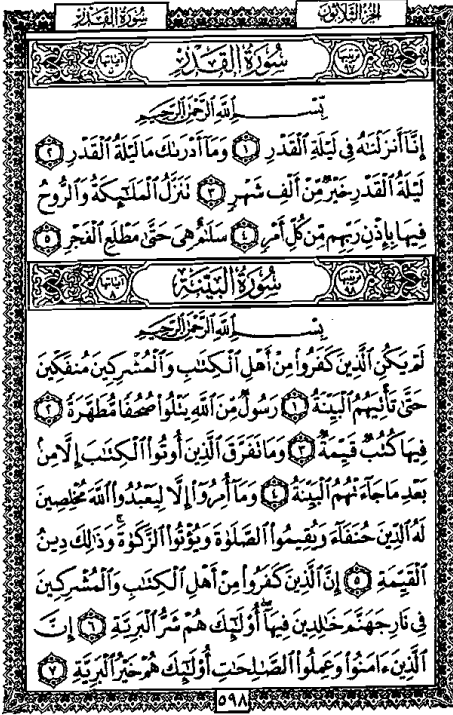 الجزء الثلاثون
سُورَةُ القَدْرِ
ترتيبها ٩٧
سُورَةُ القَدْرِ
آياتها ٥
بِسْمِ اللَّهِ الرَّحْمَٰنِ الرَّحِيمِ
إِنَّآ أَنزَلْنَٰهُ فِي لَيْلَةِ ٱلْقَدْرِ ١ وَمَآ أَدْرَىٰكَ مَا لَيْلَةُ ٱلْقَدْرِ ٢
لَيْلَةُ ٱلْقَدْرِ خَيْرٌ مِّنْ أَلْفِ شَهْرٍ ٣ تَنَزَّلُ ٱلْمَلَٰٓئِكَةُ وَٱلرُّوحُ
فِيهَا بِإِذْنِ رَبِّهِم مِّن كُلِّ أَمْرٍ ٤ سَلَٰمٌ هِيَ حَتَّىٰ مَطْلَعِ ٱلْفَجْرِ ٥
ترتيبها ٩٨
سُورَةُ البَيِّنَةِ
آياتها ٨
بِسْمِ اللَّهِ الرَّحْمَٰنِ الرَّحِيمِ
لَمْ يَكُنِ ٱلَّذِينَ كَفَرُوا۟ مِنْ أَهْلِ ٱلْكِتَٰبِ وَٱلْمُشْرِكِينَ مُنفَكِّينَ
حَتَّىٰ تَأْتِيَهُمُ ٱلْبَيِّنَةُ ١ رَسُولٌ مِّنَ ٱللَّهِ يَتْلُوا۟ صُحُفًا مُّطَهَّرَةً ٢
فِيهَا كُتُبٌ قَيِّمَةٌ ٣ وَمَا تَفَرَّقَ ٱلَّذِينَ أُوتُوا۟ ٱلْكِتَٰبَ إِلَّا مِنۢ
بَعْدِ مَا جَآءَتْهُمُ ٱلْبَيِّنَةُ ٤ وَمَآ أُمِرُوٓا۟ إِلَّا لِيَعْبُدُوا۟ ٱللَّهَ مُخْلِصِينَ
لَهُ ٱلدِّينَ حُنَفَآءَ وَيُقِيمُوا۟ ٱلصَّلَوٰةَ وَيُؤْتُوا۟ ٱلزَّكَوٰةَ ۚ وَذَٰلِكَ دِينُ
ٱلْقَيِّمَةِ ٥ إِنَّ ٱلَّذِينَ كَفَرُوا۟ مِنْ أَهْلِ ٱلْكِتَٰبِ وَٱلْمُشْرِكِينَ
فِي نَارِ جَهَنَّمَ خَٰلِدِينَ فِيهَآ ۚ أُو۟لَٰٓئِكَ هُمْ شَرُّ ٱلْبَرِيَّةِ ٦ إِنَّ
ٱلَّذِينَ ءَامَنُوا۟ وَعَمِلُوا۟ ٱلصَّٰلِحَٰتِ أُو۟لَٰٓئِكَ هُمْ خَيْرُ ٱلْبَرِيَّةِ ٧
٥٩٨